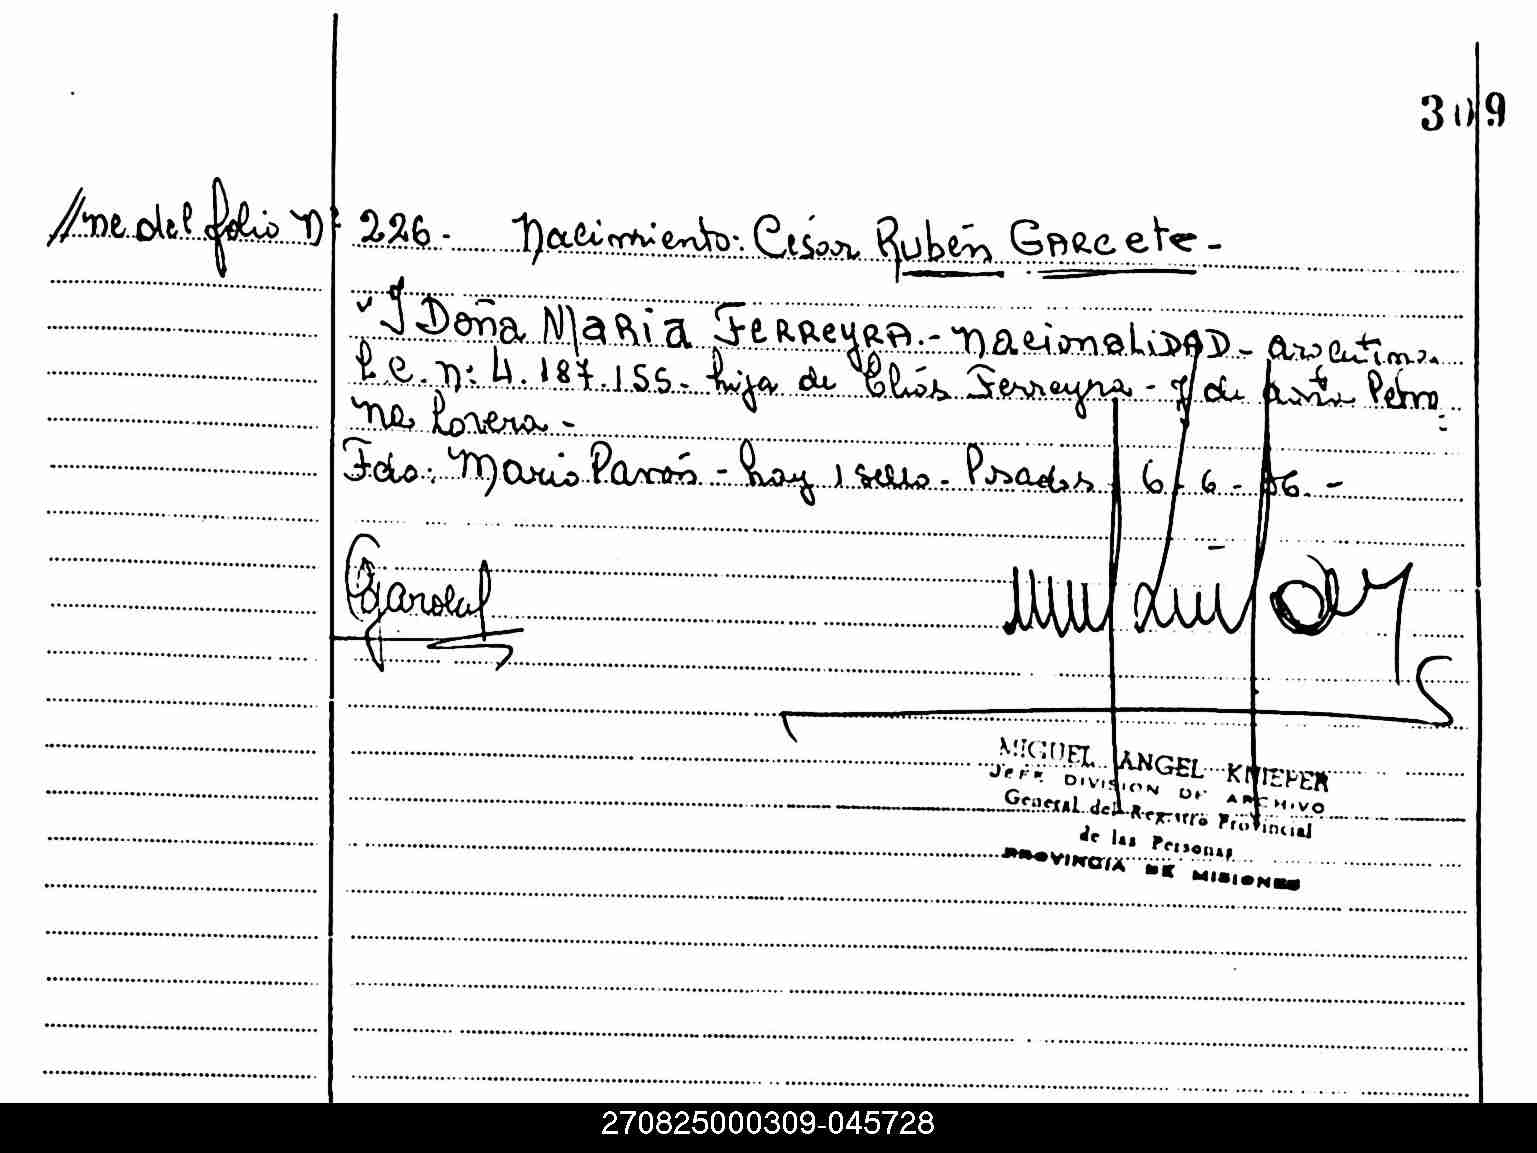 309
//ne del folio Nº 226.- Nacimiento: César Rubén GARCETE-
"Y Doña MARIA FERREYRA.- NacionaLIDAD- argentina.
L.C. Nº: 4.187.155- hija de Elias Ferreyra - y de Petro
na Lovera-
Fdo: Mario - hay 1 sello- Posadas 6-6-
MIGUEL ANGEL KNIEPER
JEFE DIVISION DE ARCHIVO
General del Registro Provincial
de las Personas
PROVINCIA DE MISIONES
270825000309-045728